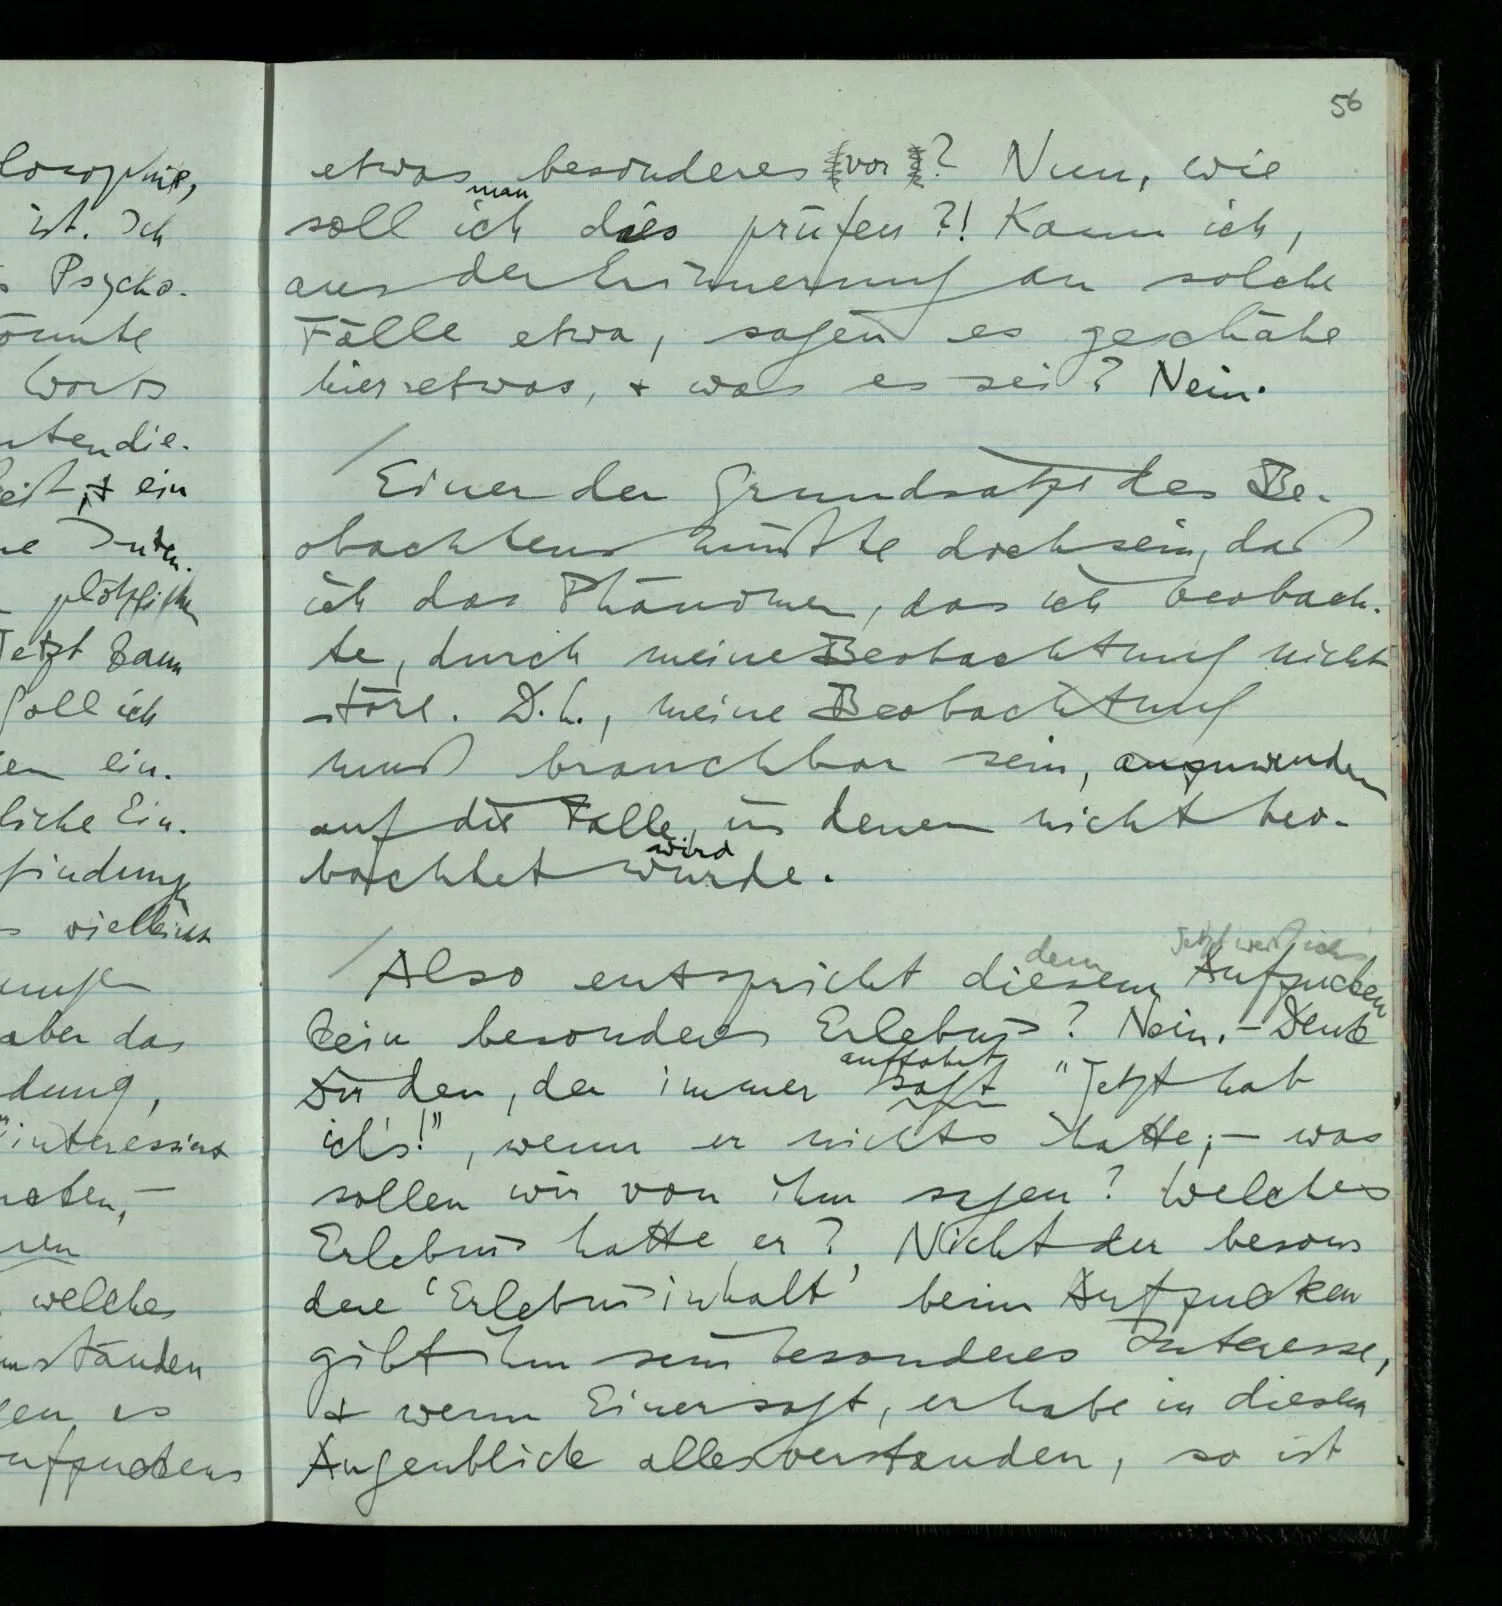 losophie,
ist. Ich
Psycho-
könnte
Worts
die-
& ein
Inten-
plötzlichen
Jetzt kann
Soll ich
ein-
liche Ein-
findung
vielleicht
aber das
dung,
"interessiert
welches
ständen
es
aufzuckens
56
etwas besonderes vor? Nun, wie
man
soll ich dies prüfen?! Kann ich,
aus der Erinnerung an solche
Fälle etwa, sagen es geschähe
hier etwas, & was es sei? Nein.
/
Einer der Grundsätze des Be-
obachtens müßte doch sein, daß
ich das Phänomen, das ich beobach-
te, durch meine Beobachtung nicht
störe. D.h., meine Beobachtung
muß brauchbar sein, anzuwenden
auf die Fälle, in denen nicht beo-
wird
bachtet wurde.
/
dem Jetzt weiß ich's
Also entspricht diesem Aufzucken
kein besonderes Erlebnis? Nein. – Denk
auffahrt
Dir den, der immer sagt "Jetzt hab
ich's!", wenn er nichts hatte; – was
sollen wir von ihm sagen? Welches
Erlebnis hatte er? Nicht der beson-
dere 'Erlebnisinhalt' beim Aufzucken
gibt ihm sein besonderes Interesse,
& wenn Einer sagt, er habe in diesem
Augenblick alles verstanden, so ist